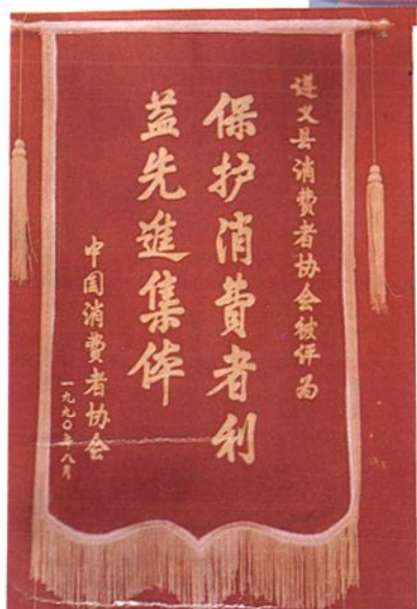 遵义县消费者协会被评为
保护消费者利
益先進集体
中国消费者协会
一九九〇年八月